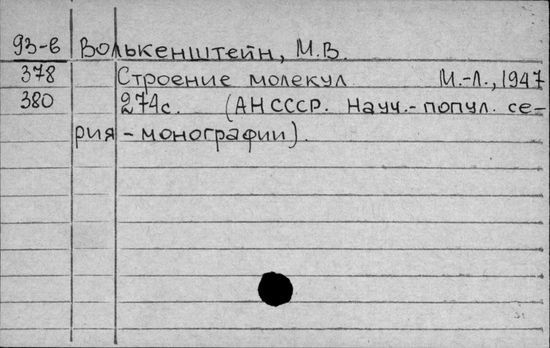 93-6 Волькенштейн, М.В.
378 Строение молекул М.-Л., 1947
380 274с. (АН СССР. Науч.-попул. се-
рия-монографии).